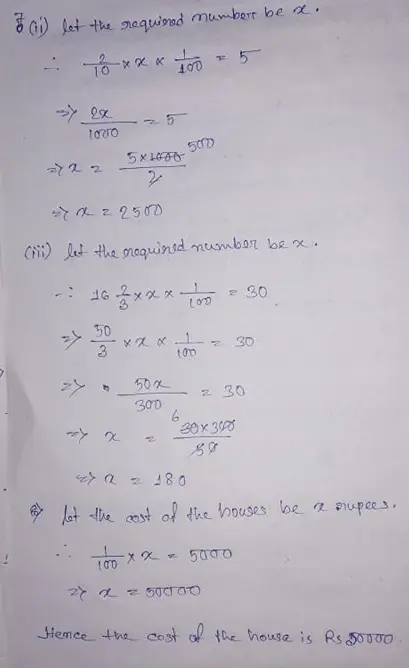 7 (ii) let the required number be x.
∴ 2/10 × x × 1/100 = 5
=> 2x/1000 = 5
=> x = 5×1000/2 500
=> x = 2500
(iii) let the required number be x.
∴ 16 2/3 × x × 1/100 = 30
=> 50/3 × x × 1/100 = 30
=> 50x/300 = 30
=> x = 30×300/50 6
=> x = 180
let the cost of the houses be x rupees.
∴ 1/100 × x = 5000
=> x = 50000
Hence the cost of the house is Rs 50000.